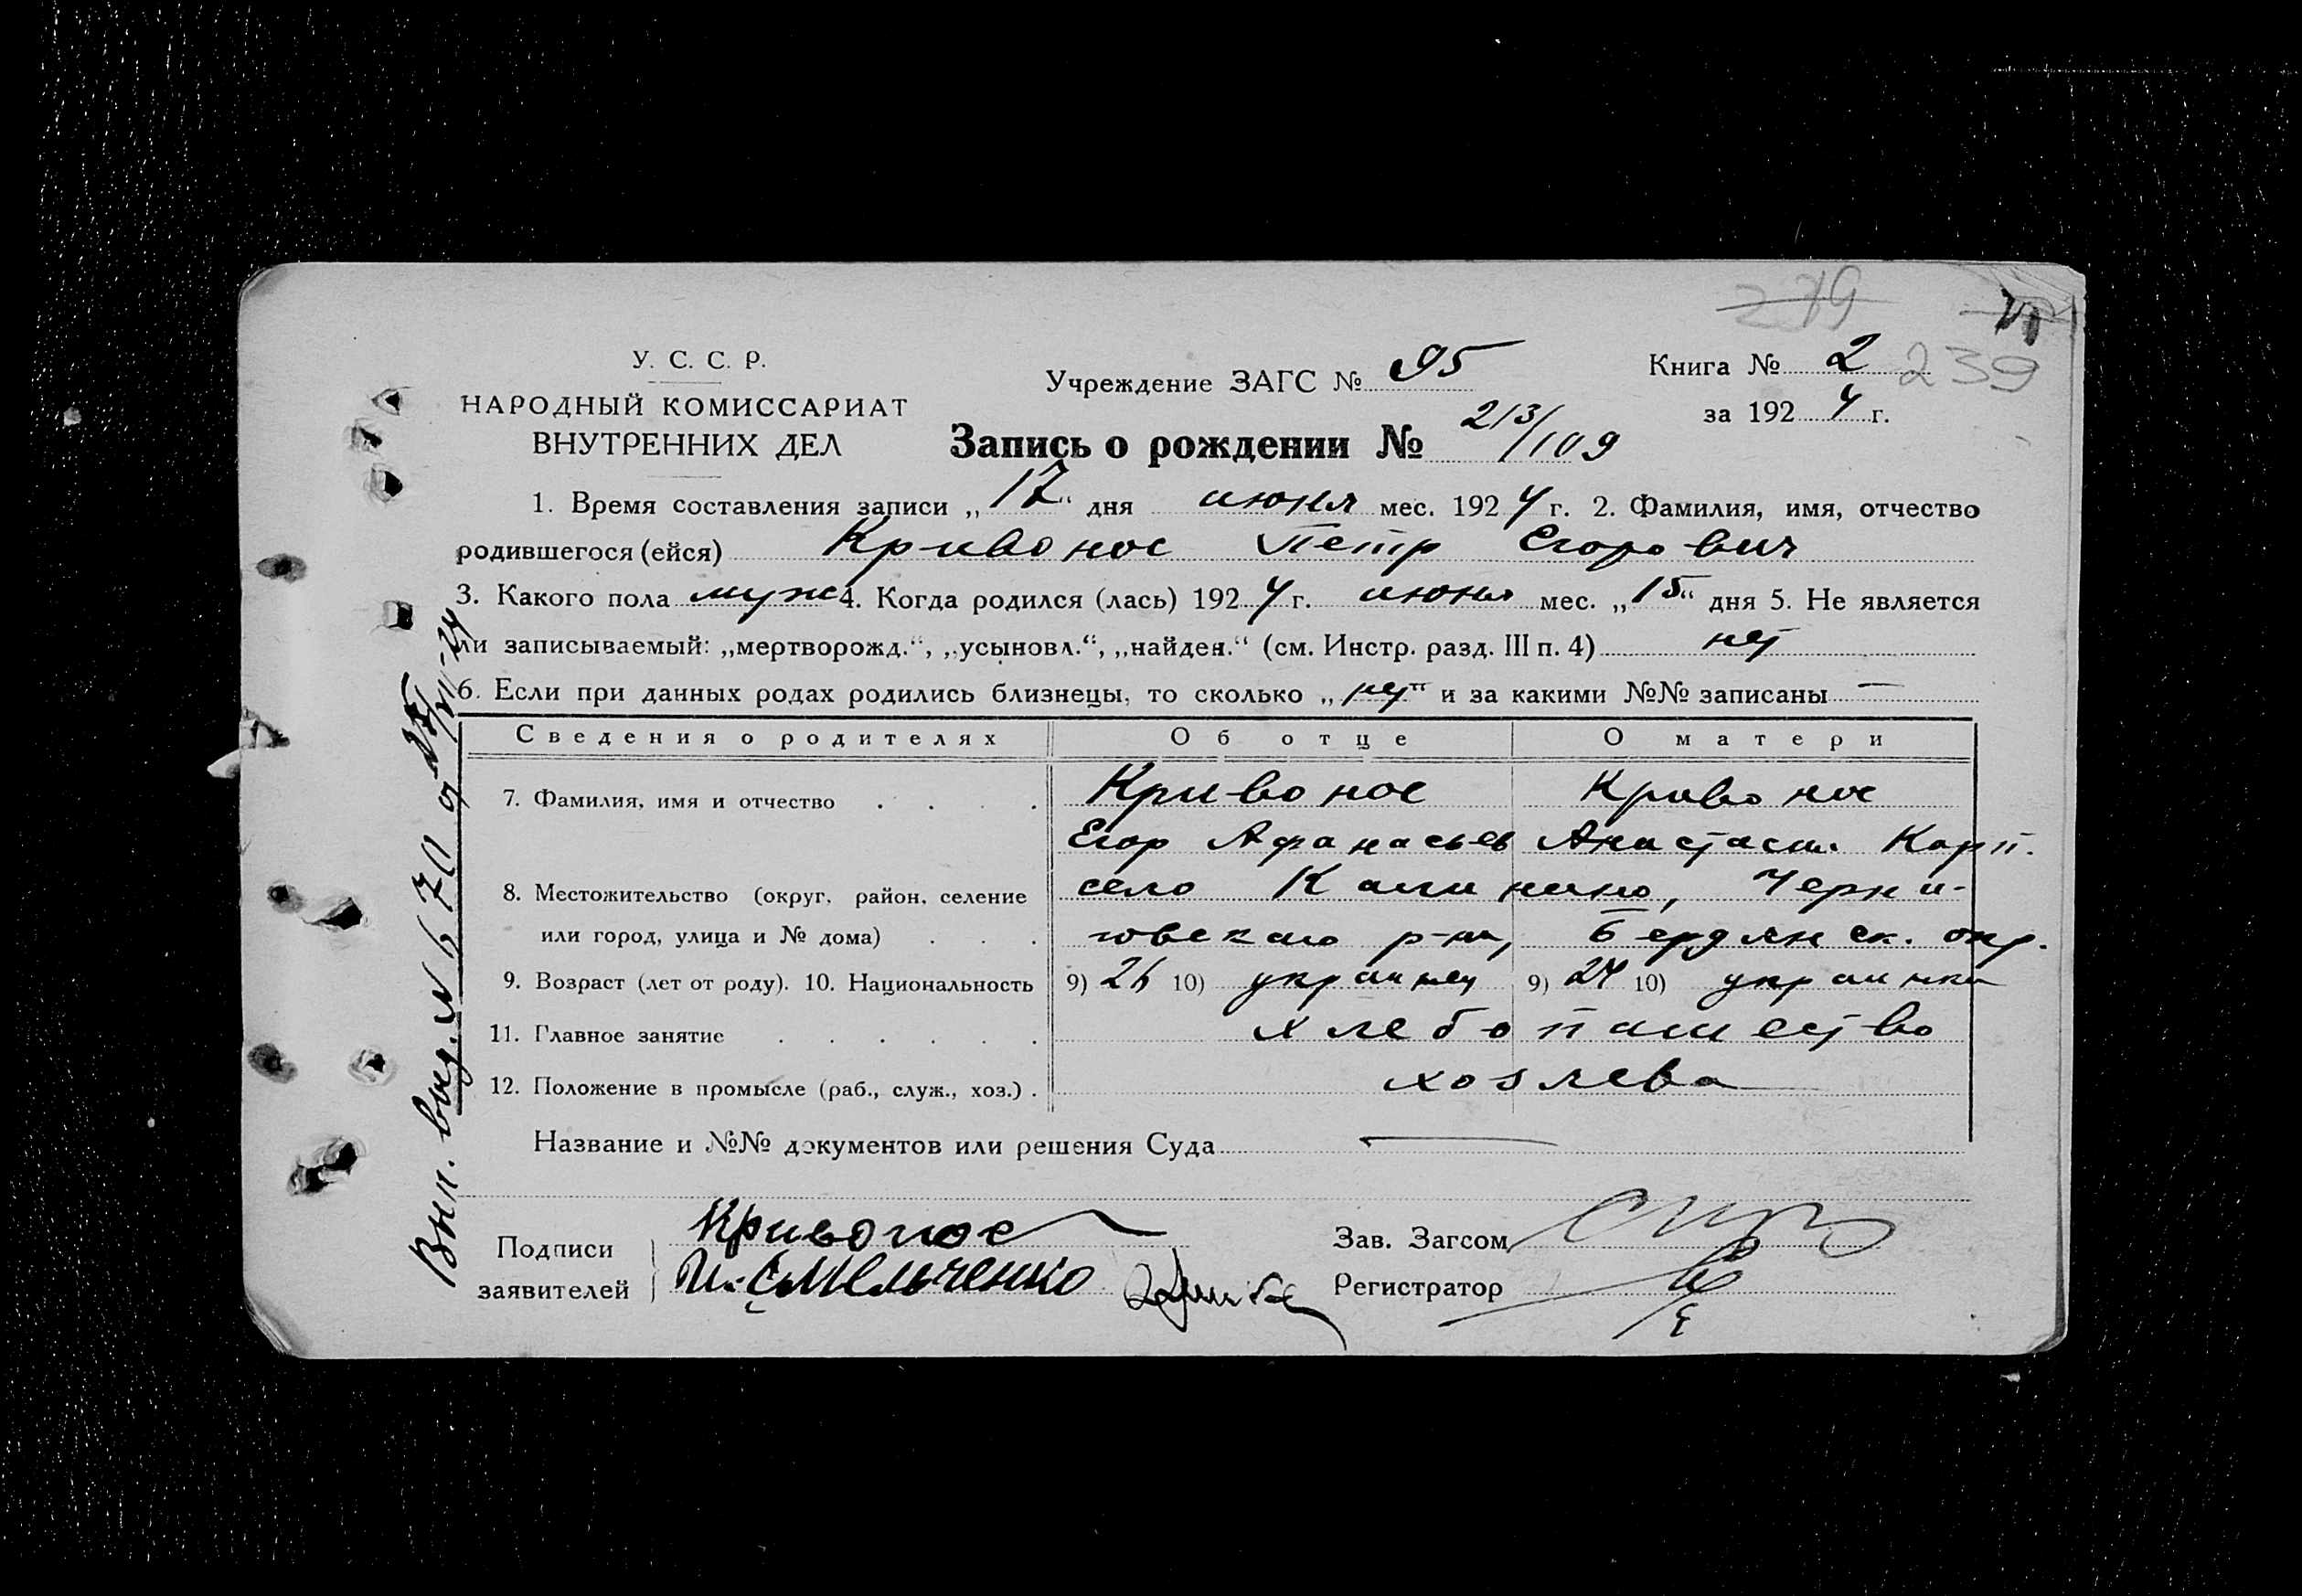 279
У. С. С. Р.
НАРОДНЫЙ КОМИССАРИАТ
ВНУТРЕННИХ ДЕЛ
Учреждение ЗАГС № 95
Книга № 2 239
за 192 4 г.
Запись о рождении № 213/109
1. Время составления записи „17“ дня июня мес. 192 4 г. 2. Фамилия, имя, отчество
родившегося (ейся) Кривонос Петр Егорович
3. Какого пола муж 4. Когда родился (лась) 192 4 г. июня мес. „15“ дня 5. Не является
ли записываемый: „мертворожд.“, „усыновл.“, „найден.“ (см. Инстр. разд. III п. 4) нет
6. Если при данных родах родились близнецы, то сколько „нет“ и за какими №№ записаны —
Сведения о родителях Об отце О матери
7. Фамилия, имя и отчество . . . . Кривонос Кривонос
Егор Афанасьев Анастасия Карп.
8. Местожительство (округ, район, селение село Калинино, Черни-
или город, улица и № дома) . . . говского р-на, Бердянск. окр.
9. Возраст (лет от роду). 10. Национальность 9) 26 10) украинец 9) 24 10) украинка
11. Главное занятие . . . . . . хлебопашество
12. Положение в промысле (раб., служ., хоз.) . хозяева
Название и №№ документов или решения Суда —
Подписи
заявителей
Кривонос
И. Смельченко
Зав. Загсом
Регистратор
Вып. выд. № 670